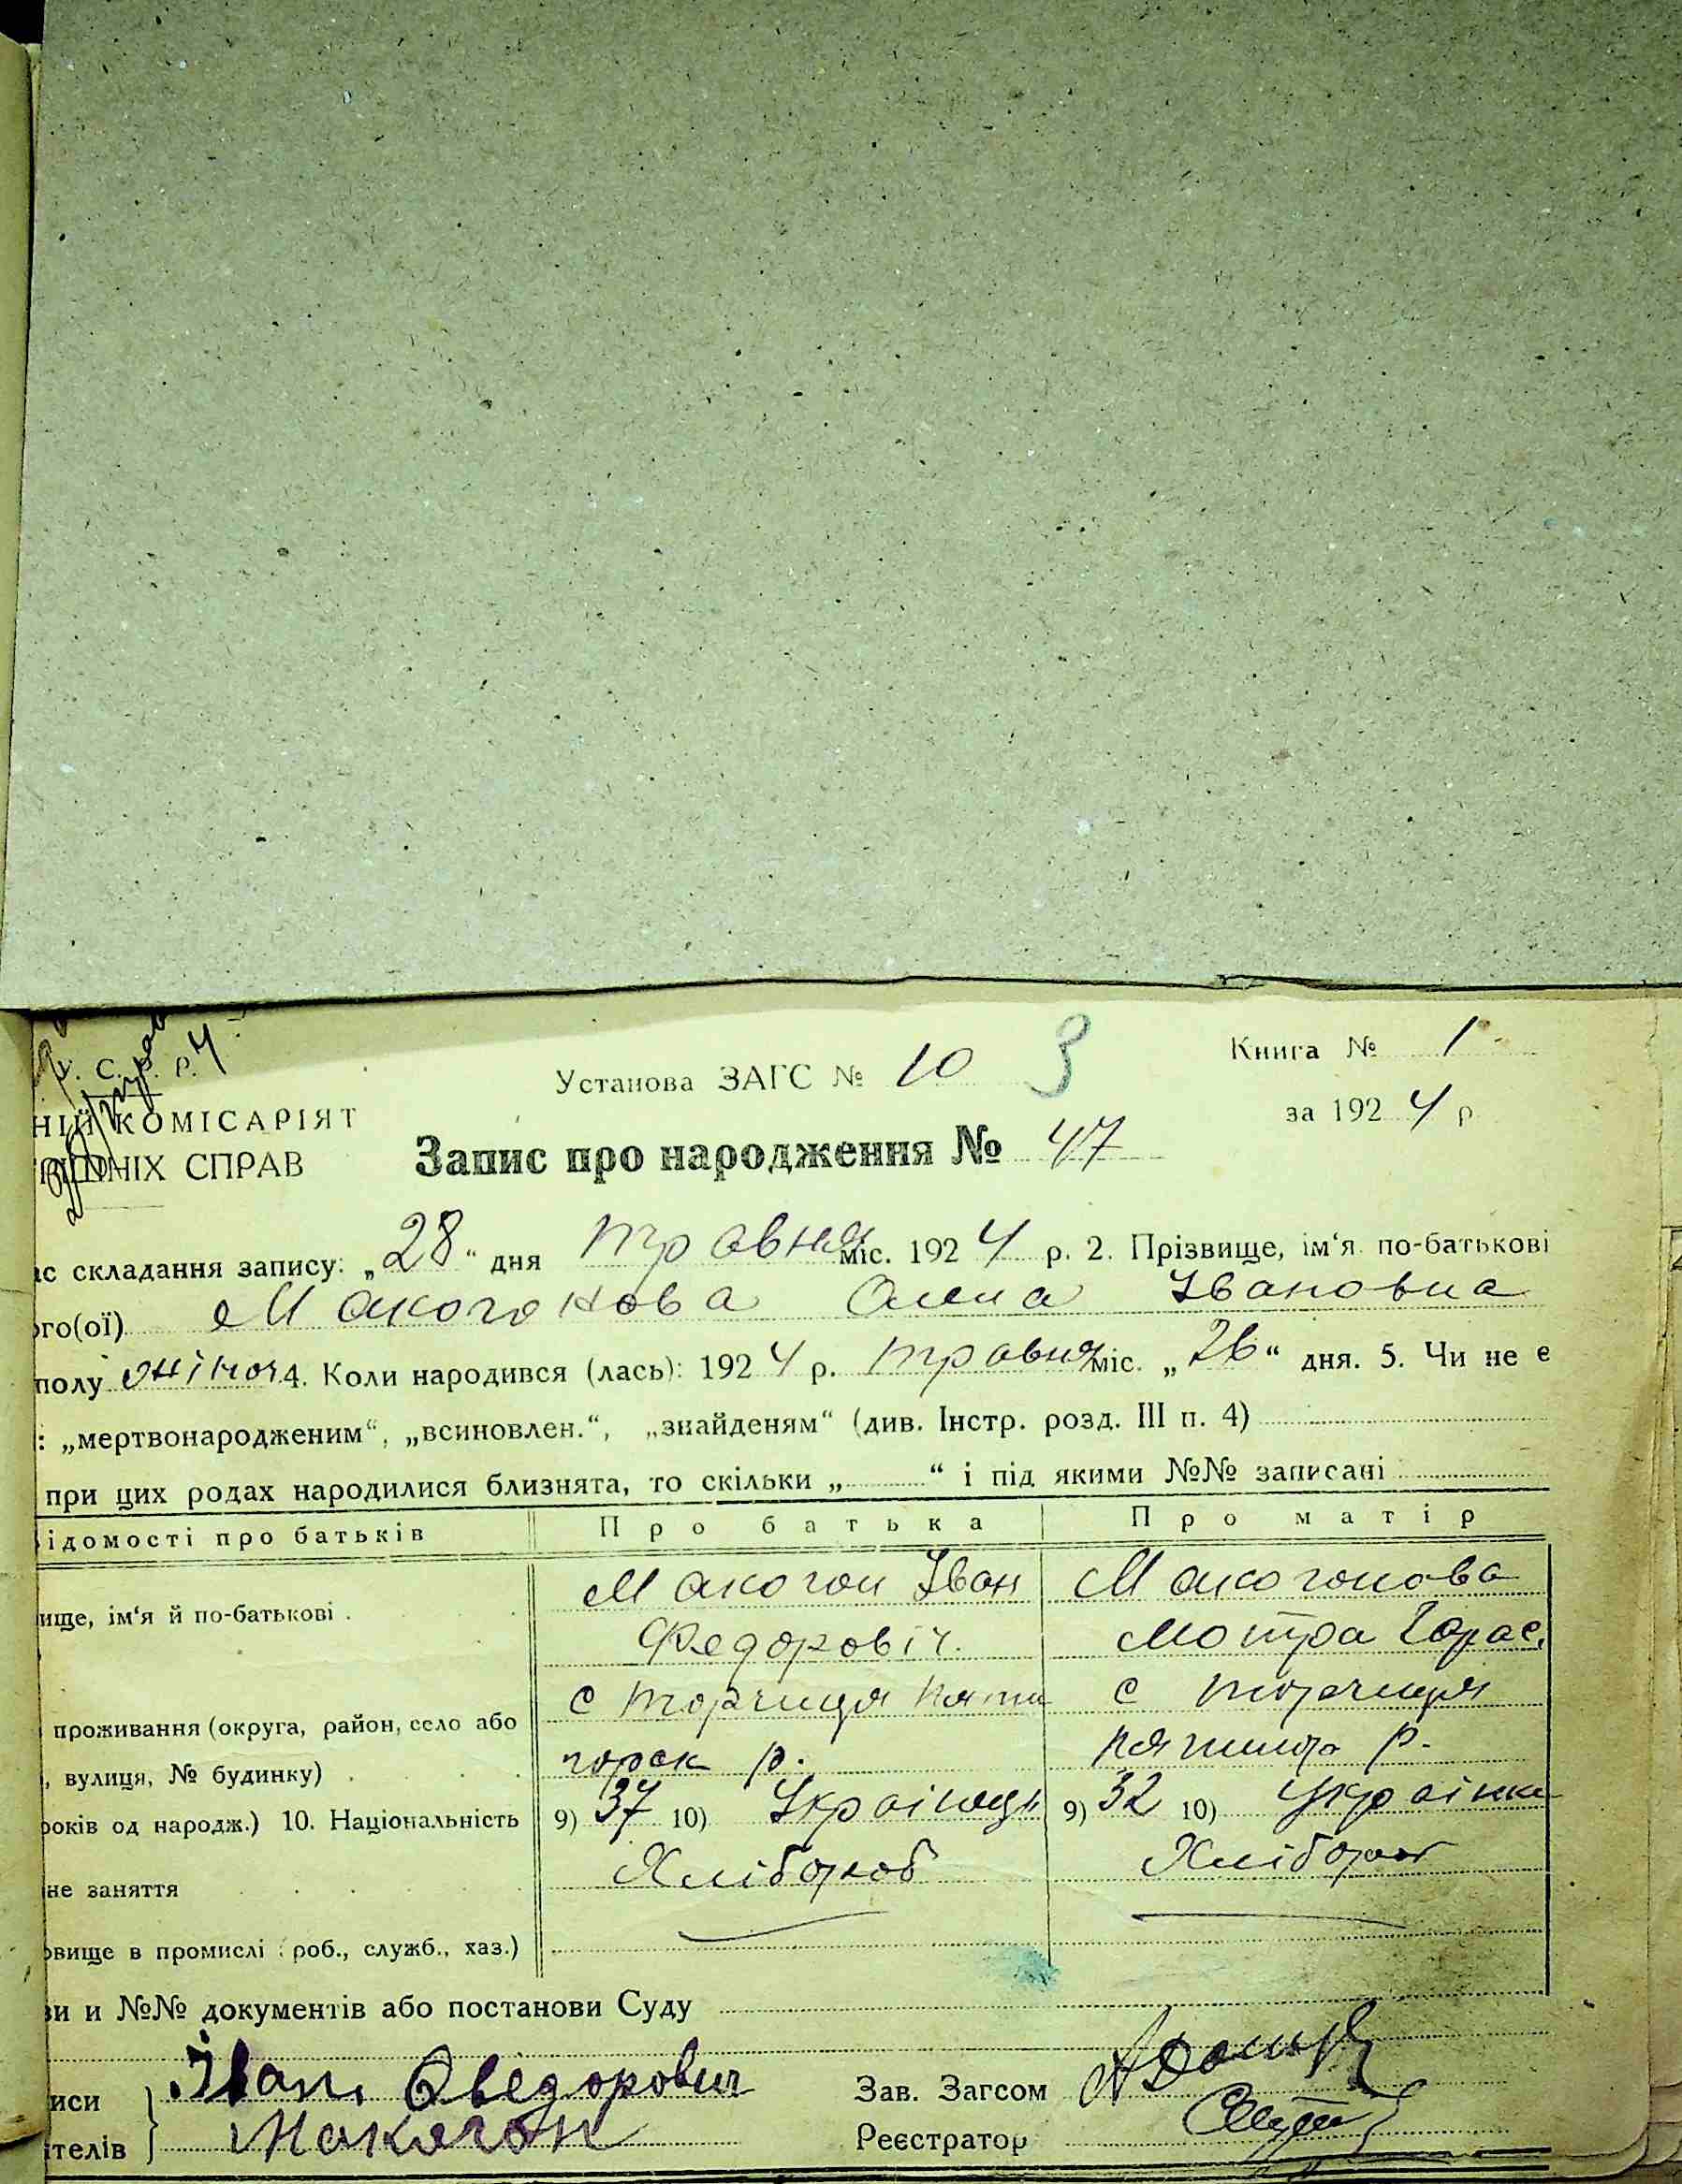 У. С. Р. Р.
Установа ЗАГС № 10 3
Книга № 1
за 1924 р
НІЙ КОМІСАРІЯТ
ІШНІХ СПРАВ
Запис про народження № 47
ас складання запису: „28“ дня травня міс. 1924 р. 2. Прізвище, ім‘я по-батькові
ого(ої) Макогонова Олена Івановна
полу жіноч 4. Коли народився (лась): 1924 р. травня міс. „26“ дня. 5. Чи не є
: „мертвонародженим“, „всиновлен.“, „знайденям“ (див. Інстр. розд. III п. 4)
при цих родах народилися близнята, то скільки „ “ і під якими №№ записані
ідомості про батьків Про батька Про матір
Макогон Іван Макогонова
ище, ім‘я й по-батькові .
Федоровіч. Мотра Тарас.
с Торчиця Пяти с Торчиця
проживання (округа, район, село або
горск р. Пятигор р.
, вулиця, № будинку) .
років од народж.) 10. Національність 9) 37 10) Українець 9) 32 10) Українка
не заняття Хлібороб Хлібороб
овище в промислі (роб., служб., хаз.)
ви и №№ документів або постанови Суду
иси Іван Фведорович
Зав. Загсом
ителів Макагон
Реєстратор